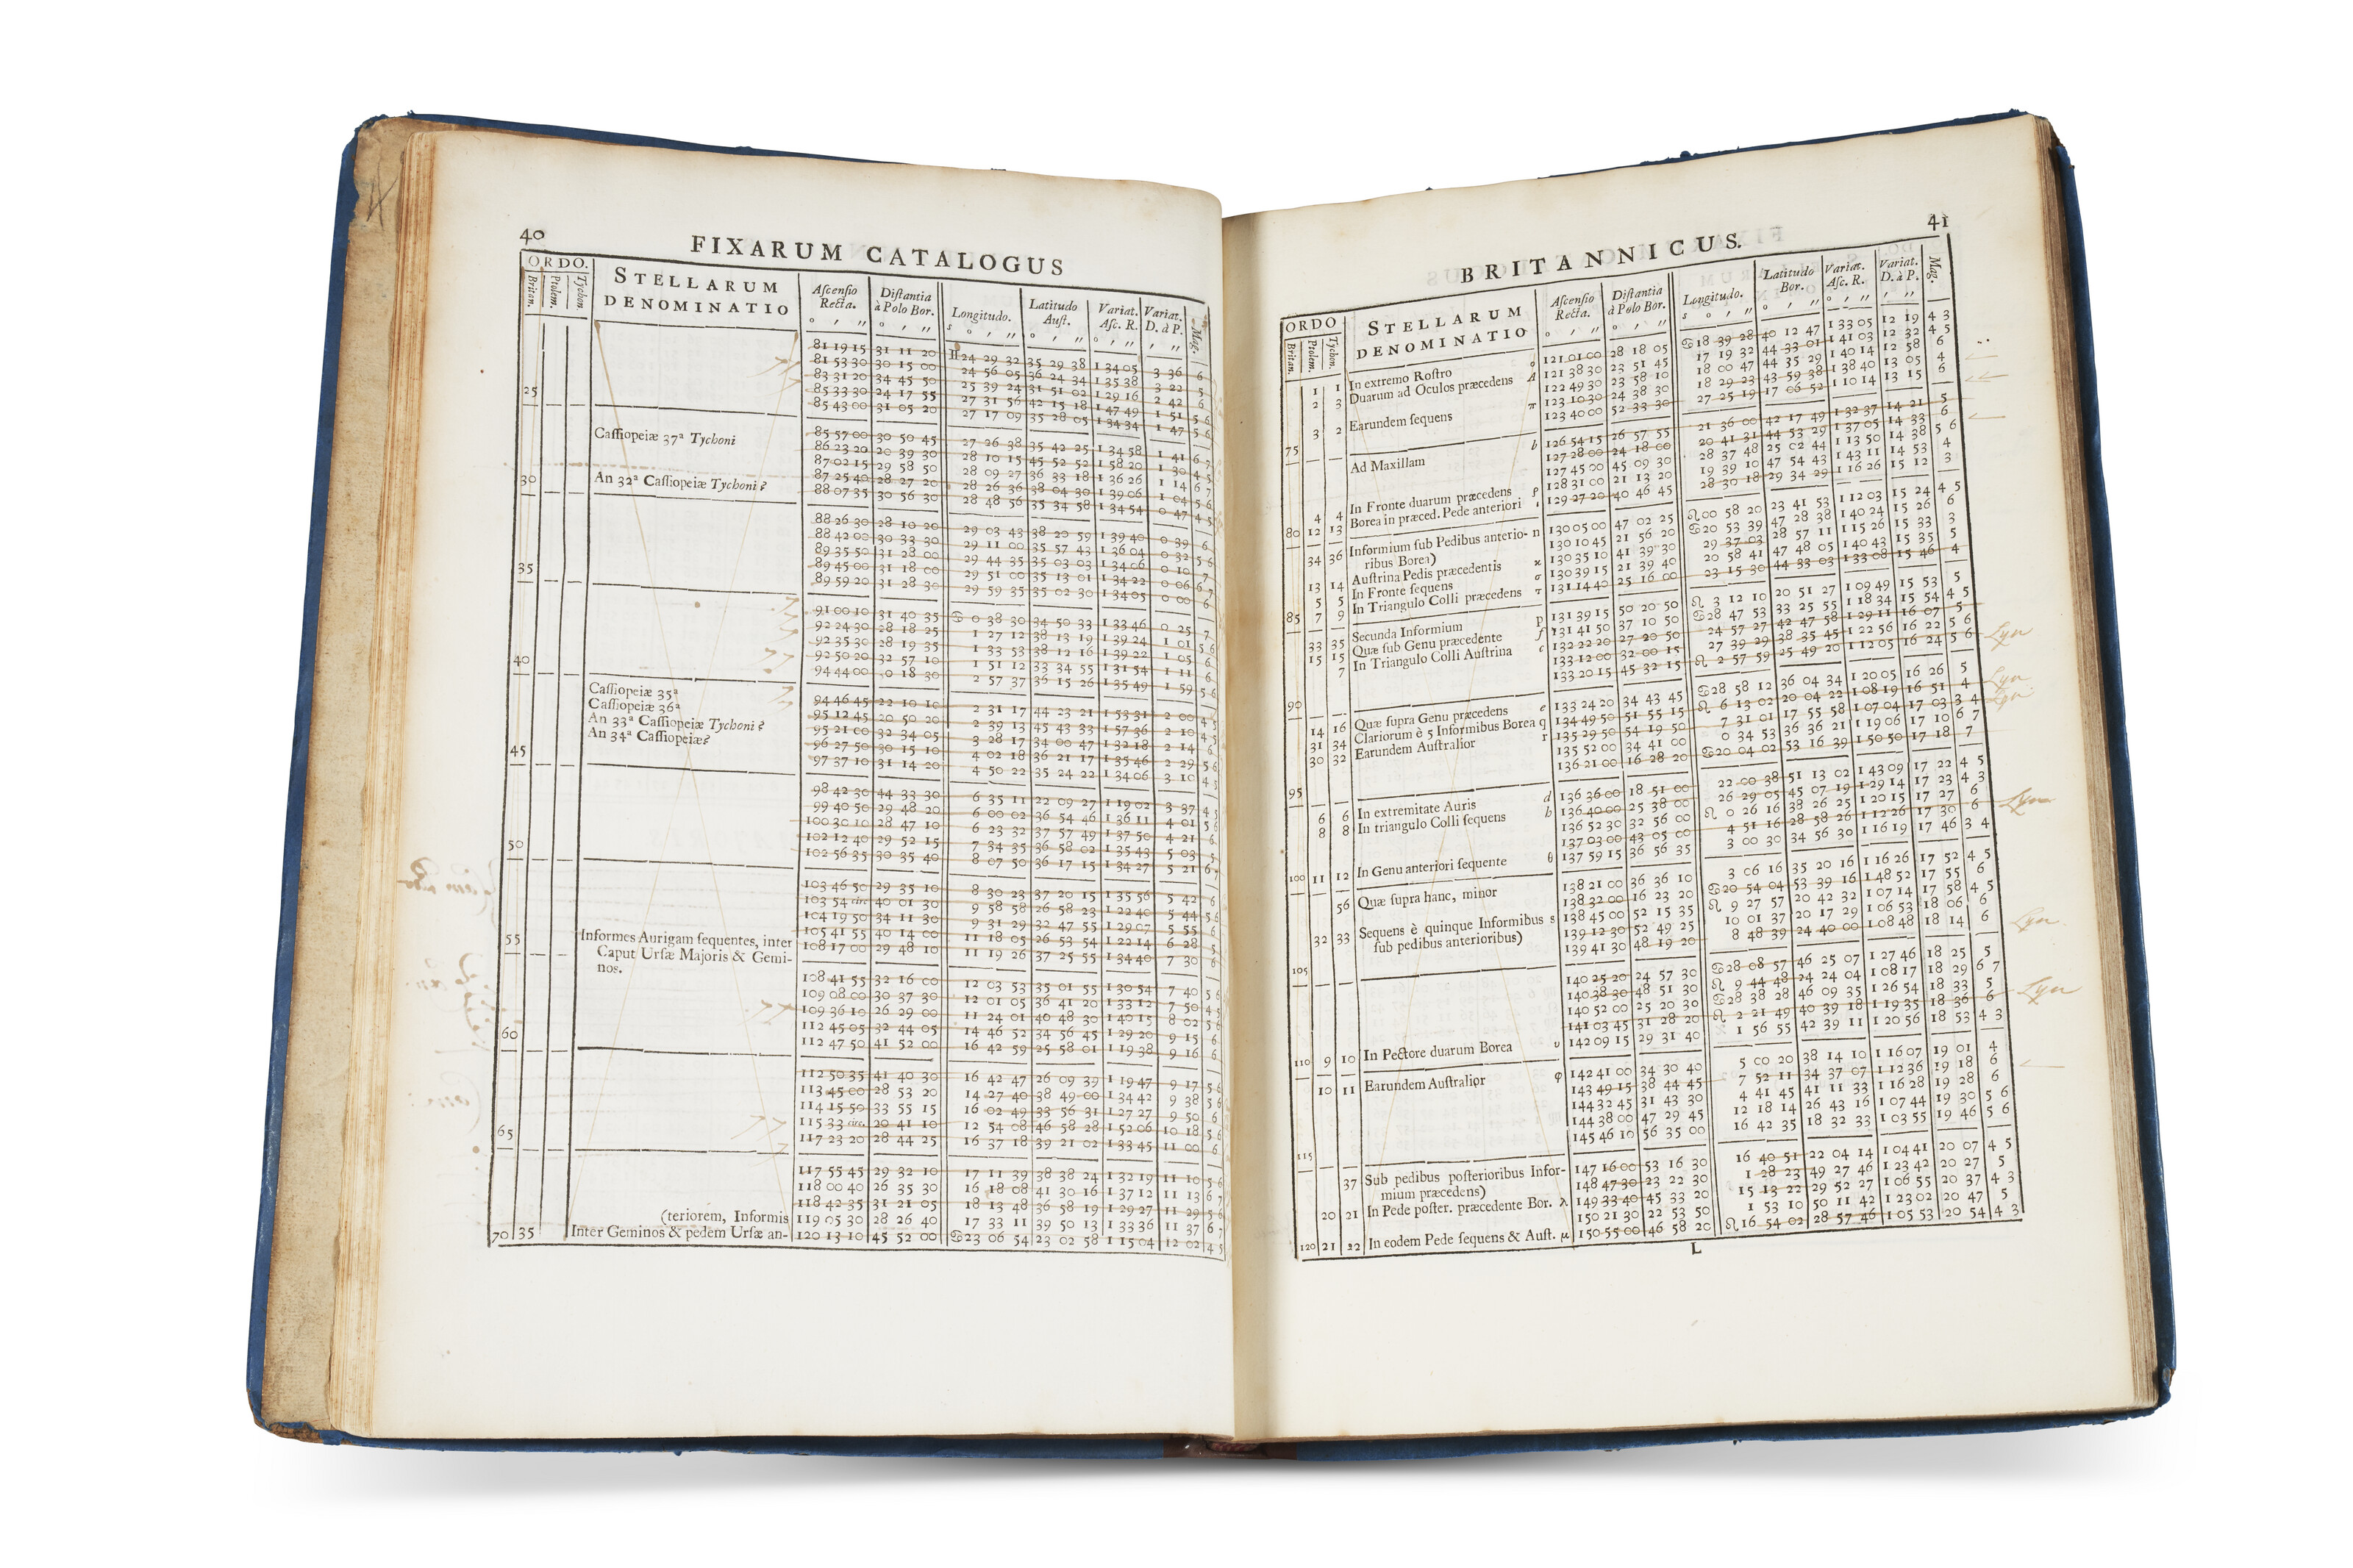 40
FIXARUM CATALOGUS
ORDO.
Britan. Ptolem. Tychon.
STELLARUM DENOMINATIO
Aſcenſio Recta. Diſtantia à Polo Bor. Longitudo. Latitudo Auſt. Variat. Aſc. R. Variat. D. à P. Mag.
81 19 15 31 11 20 II 24 29 32 35 29 38 1 34 05 3 36 6
81 53 30 30 15 00 24 56 05 36 24 34 1 35 38 3 22 5
83 31 20 34 45 50 25 39 24 31 51 02 1 29 16 2 42 6
85 33 30 24 17 55 27 31 56 42 15 18 1 47 49 1 51 5 6
25 85 43 00 31 05 20 27 17 09 35 28 05 1 34 34 1 47 5 6
Caſſiopeiæ 37ª Tychoni 85 57 00 30 50 45 27 26 38 35 42 25 1 34 58 1 41 6 7
86 23 20 20 39 30 28 10 15 45 52 52 1 58 20 1 30 4 5
87 02 15 29 58 50 28 09 27 36 33 18 1 36 26 1 14 6 7
An 32ª Caſſiopeiæ Tychoni? 87 25 40 28 27 20 28 26 36 38 04 30 1 39 06 1 04 5 6
30 88 07 35 30 56 30 28 48 56 35 34 58 1 34 54 0 47 4 5
88 26 30 28 10 20 29 03 43 38 20 59 1 39 40 0 39 6
88 42 00 30 33 30 29 11 00 35 57 43 1 36 04 0 32 5 6
89 35 50 31 28 00 29 44 35 35 03 03 1 34 06 0 10 7
89 45 00 31 18 00 29 51 00 35 13 01 1 34 22 0 06 6 7
35 89 59 20 31 28 30 29 59 35 35 02 30 1 34 05 0 00 6
91 00 10 31 40 35 ♋ 0 38 30 34 50 33 1 33 46 0 25 7
92 24 30 28 18 25 1 27 12 38 13 19 1 39 24 1 01 5 6
92 35 30 28 19 35 1 33 53 38 12 16 1 39 22 1 05 6
92 50 20 32 57 10 1 51 12 33 34 55 1 31 54 1 11 6
40 94 44 00 0 18 30 2 57 37 36 15 26 1 35 49 1 59 5 6
Caſſiopeiæ 35ª 94 46 45 22 10 10 2 31 17 44 23 21 1 53 31 2 00 4 5
Caſſiopeiæ 36ª 95 12 45 20 50 20 2 39 13 45 43 33 1 57 36 2 10 4 5
An 33ª Caſſiopeiæ Tychoni? 95 21 00 32 34 05 3 28 17 34 00 47 1 32 18 2 14 6
An 34ª Caſſiopeiæ? 96 27 50 30 15 10 4 02 18 36 21 17 1 35 46 2 29 5 6
45 97 37 10 31 14 20 4 50 22 35 24 22 1 34 06 3 10 4 5
98 42 30 44 33 30 6 35 11 22 09 27 1 19 02 3 37 4 5
99 40 50 29 48 20 6 00 02 36 54 46 1 36 11 4 01 5 6
100 30 10 28 47 10 6 23 32 37 57 49 1 37 50 4 21 6
102 12 40 29 52 15 7 34 35 36 58 02 1 35 43 5 03 5
50 102 56 35 30 35 40 8 07 50 36 17 15 1 34 27 5 21 6 7
103 46 50 29 35 10 8 30 23 37 20 15 1 35 56 5 42 6
103 54 circ 40 01 30 9 58 58 26 58 23 1 22 40 5 44 5 6
104 19 50 34 11 30 9 31 29 32 47 55 1 29 07 5 55 6
105 41 55 40 14 00 11 18 05 26 53 54 1 22 14 6 28 5
55 Informes Aurigam ſequentes, inter 108 17 00 29 48 10 11 19 26 37 25 55 1 34 40 7 30 6
Caput Urſæ Majoris & Gemi-
nos.
108 41 55 32 16 00 12 03 53 35 01 55 1 30 54 7 40 5 6
109 08 00 30 37 30 12 01 05 36 41 20 1 33 12 7 50 4 5
109 36 10 26 29 00 11 24 01 40 48 30 1 40 15 8 02 5 6
112 45 05 32 44 05 14 46 52 34 56 45 1 29 20 9 15 6
60 112 47 50 41 52 00 16 42 59 25 58 01 1 19 38 9 16 6
112 50 35 41 40 30 16 42 47 26 09 39 1 19 47 9 17 5 6
113 45 00 28 53 20 14 27 40 38 49 00 1 34 42 9 38 5 6
114 15 50 33 55 15 16 02 49 33 56 31 1 27 27 9 50 6
115 33 circ. 20 41 10 12 54 08 46 58 28 1 52 06 10 18 5 6
65 117 23 20 28 44 25 16 37 18 39 21 02 1 33 45 11 00 6
117 55 45 29 32 10 17 11 39 38 38 24 1 32 19 11 10 5 6
118 00 40 26 35 30 16 18 08 41 30 16 1 37 12 11 13 6 7
118 42 35 31 21 05 18 13 48 36 58 19 1 29 27 11 29 5 6
(teriorem, Informis 119 05 30 28 26 40 17 33 11 39 50 13 1 33 36 11 37 6 7
70 35 Inter Geminos & pedem Urſæ an- 120 13 10 45 52 00 ♋ 23 06 54 23 02 58 1 15 04 12 02 4 5
41
BRITANNICUS.
ORDO
Britan. Ptolem. Tychon.
STELLARUM DENOMINATIO
Aſcenſio Recta. Diſtantia à Polo Bor. Longitudo. Latitudo Bor. Variat. Aſc. R. Variat. D. à P. Mag.
1 1 In extremo Roſtro o 121 01 00 28 18 05 ♋ 18 39 28 40 12 47 1 33 05 12 19 4 3
2 3 Duarum ad Oculos præcedens A 121 38 30 23 51 45 17 19 32 44 33 01 1 41 03 12 32 4 5
122 49 30 23 58 10 18 00 47 44 35 29 1 40 14 12 58 6
3 2 Earundem ſequens π 123 10 30 24 38 30 18 29 23 43 59 38 1 38 40 13 05 4
75 123 40 00 52 33 30 27 25 19 17 06 52 1 10 14 13 15 6
Ad Maxillam b 126 54 15 26 57 55 21 36 00 42 17 49 1 32 37 14 21 5
127 28 00 24 18 00 20 41 31 44 53 29 1 37 05 14 33 6
127 45 00 45 09 30 28 37 48 25 02 44 1 13 50 14 38 5 6
4 4 In Fronte duarum præcedens ρ 128 31 00 21 13 20 19 39 10 47 54 43 1 43 11 14 53 4
80 12 13 Borea in præced. Pede anteriori ι 129 27 20 40 46 45 28 30 18 29 34 29 1 16 26 15 12 3
34 36 Informium ſub Pedibus anterio- n 130 05 00 47 02 25 ♌ 00 58 20 23 41 53 1 12 03 15 24 4 5
ribus Borea) 130 10 45 21 56 20 ♋ 20 53 39 47 28 38 1 40 24 15 26 6
13 14 Auſtrina Pedis præcedentis κ 130 35 10 41 39 30 29 37 03 28 57 11 1 15 26 15 33 3
5 5 In Fronte ſequens σ 130 39 15 21 39 40 20 58 41 47 48 05 1 40 43 15 35 5
85 7 9 In Triangulo Colli præcedens τ 131 14 40 25 16 00 23 15 30 44 33 03 1 33 08 15 46 4
33 35 Secunda Informium p 131 39 15 50 20 50 ♌ 3 12 10 20 51 27 1 09 49 15 53 5
15 15 Quæ ſub Genu præcedente f 131 41 50 37 10 50 ♋ 28 47 53 33 25 55 1 18 34 15 54 4 5
7 In Triangulo Colli Auſtrina c 132 22 20 27 20 50 24 57 27 42 47 58 1 29 11 16 07 5
133 12 00 32 00 15 27 39 29 38 35 45 1 22 56 16 22 5 6
90 133 20 15 45 32 15 ♌ 2 57 59 25 49 20 1 12 05 16 24 5 6 Lyn
14 16 Quæ ſupra Genu præcedens e 133 24 20 34 43 45 ♋ 28 58 12 36 04 34 1 20 05 16 26 5
31 34 Clariorum è 5 Informibus Borea q 134 49 50 51 55 15 ♌ 6 13 02 20 04 22 1 08 19 16 51 4 Lyn
30 32 Earundem Auſtralior r 135 29 50 54 19 50 7 31 01 17 55 58 1 07 04 17 03 3 4 Lyn
135 52 00 34 41 00 0 34 53 36 36 21 1 19 06 17 10 6 7
95 136 21 00 16 28 20 ♋ 20 04 02 53 16 39 1 50 50 17 18 7
6 6 In extremitate Auris d 136 36 00 18 51 00 22 00 38 51 13 02 1 43 09 17 22 4 5
8 8 In triangulo Colli ſequens h 136 40 00 25 38 00 26 29 05 45 07 19 1 29 14 17 23 4 3
136 52 30 32 56 00 ♌ 0 26 16 38 26 25 1 20 15 17 27 6
137 03 00 43 05 00 4 51 16 28 58 26 1 12 26 17 30 6 Lyn
100 11 12 In Genu anteriori ſequente θ 137 59 15 36 56 35 3 00 30 34 56 30 1 16 19 17 46 3 4
56 Quæ ſupra hanc, minor 138 21 00 36 36 10 3 06 16 35 20 16 1 16 26 17 52 4 5
138 32 00 16 23 20 ♋ 20 54 04 53 39 16 1 48 52 17 55 6
32 33 Sequens è quinque Informibus s 138 45 00 52 15 35 ♌ 9 27 57 20 42 32 1 07 14 17 58 4 5
ſub pedibus anterioribus) 139 12 30 52 49 25 10 01 37 20 17 29 1 06 53 18 06 6
105 139 41 30 48 19 20 8 48 39 24 40 00 1 08 48 18 14 6 Lyn
140 25 20 24 57 30 ♋ 28 08 57 46 25 07 1 27 46 18 25 5
140 38 30 48 51 30 ♌ 9 44 48 24 24 04 1 08 17 18 29 6 7 Lyn
140 52 00 25 20 30 ♋ 28 38 28 46 09 35 1 26 54 18 33 5
141 03 45 31 28 20 ♌ 2 21 49 40 39 18 1 19 35 18 36 6
110 9 10 In Pectore duarum Borea υ 142 09 15 29 31 40 1 56 55 42 39 11 1 20 56 18 53 4 3
10 11 Earundem Auſtralior φ 142 41 00 34 30 40 5 00 20 38 14 10 1 16 07 19 01 4
143 49 15 38 44 45 7 52 11 34 37 07 1 12 36 19 18 6
144 32 45 31 43 30 4 41 45 41 11 33 1 16 28 19 28 6
144 38 00 47 29 45 12 18 14 26 43 16 1 07 44 19 30 5 6
115 145 46 10 56 35 00 16 42 35 18 32 33 1 03 55 19 46 5 6
37 Sub pedibus poſterioribus Infor- 147 16 00 53 16 30 16 40 51 22 04 14 1 04 41 20 07 4 5
mium præcedens) 148 47 30 23 22 30 1 28 23 49 27 46 1 23 42 20 27 5
20 21 In Pede poſter. præcedente Bor. λ 149 33 40 45 33 20 15 13 22 29 52 27 1 06 55 20 37 4 3
150 21 30 22 53 50 1 53 10 50 11 42 1 23 02 20 47 5
120 21 22 In eodem Pede ſequens & Auſt. μ 150 55 00 46 58 20 ♌ 16 54 02 28 57 46 1 05 53 20 54 4 3
L